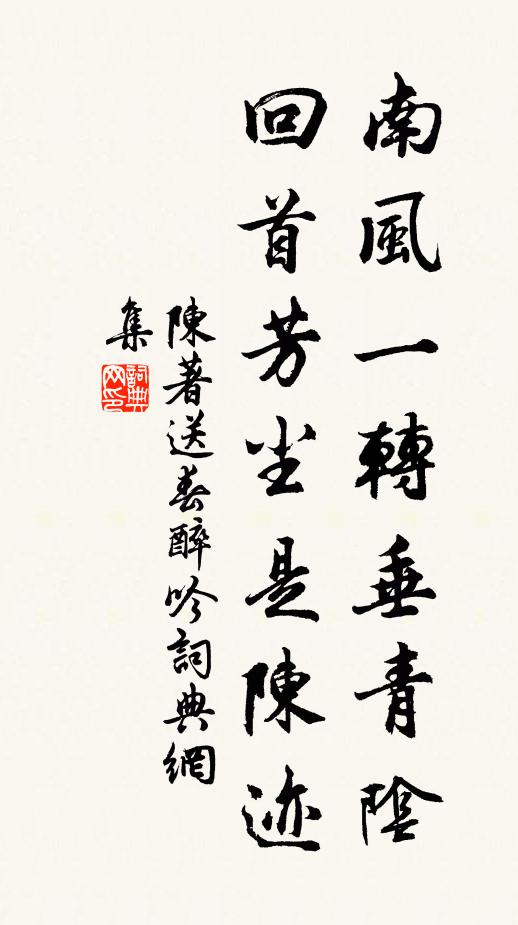 南風一轉垂青陰
回首芳尘是陳迹
陳著送春醉吟詞典網
集
詞典网印